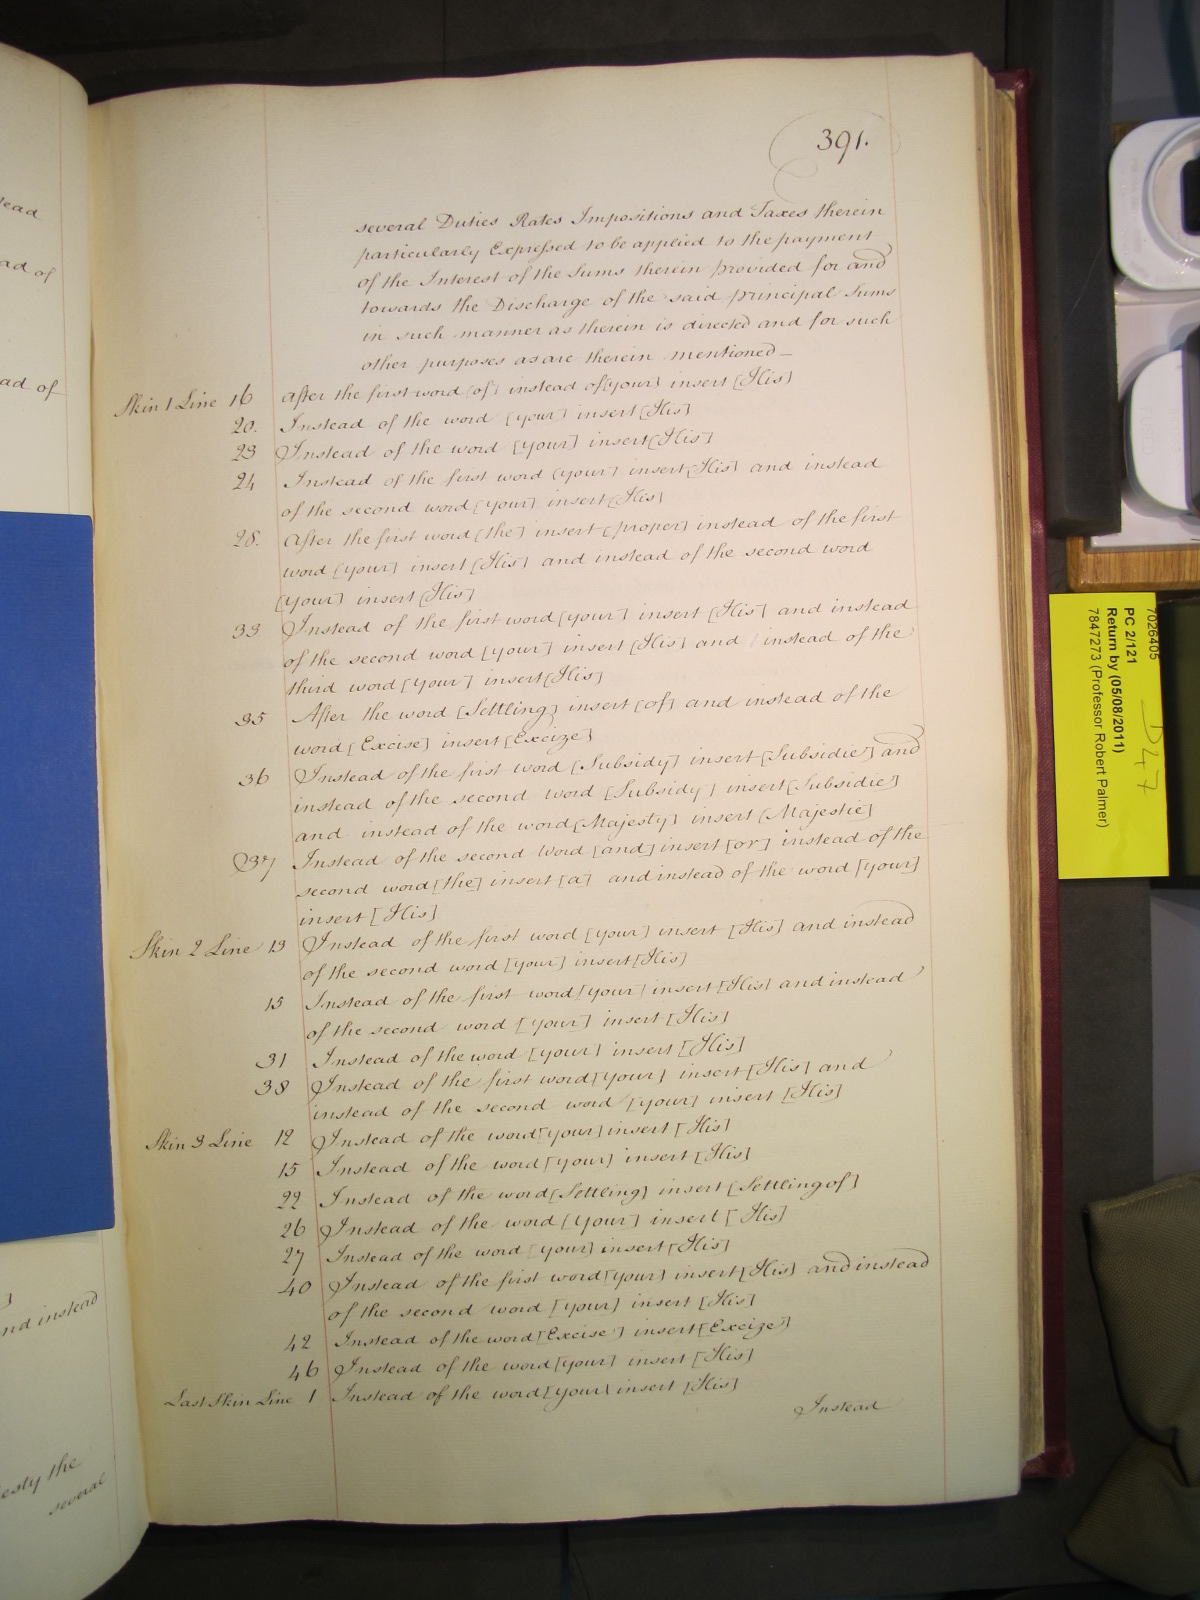 391.
several Duties Rates Impositions and Taxes therein
particularly Expressed to be applied to the payment
of the Interest of the Sums therein provided for and
towards the Discharge of the said principal Sums
in such manner as therein is directed and for such
other purposes as are therein mentioned_
Skin 1 Line 16 After the first word [of] instead of [your] insert [His]
20. Instead of the word [your] insert [His]
23 Instead of the word [your] insert [His]
24 Instead of the first word [your] insert [His] and instead
of the second word [your] insert [His]
28. After the first word [the] insert [proper] instead of the first
word [your] insert [His] and instead of the second word
[your] insert [His]
33 Instead of the first word [your] insert [His] and instead
of the second word [your] insert [His] and instead of the
third word [your] insert [His]
35 After the word [Settling] insert [of] and instead of the
word [Excise] insert [Excize]
36 Instead of the first word [Subsidy] insert [Subsidie] and
instead of the second word [Subsidy] insert [Subsidie]
and instead of the word [Majesty] insert [Majestie]
37 Instead of the second Word [and] insert [or] instead of the
second word [the] insert [a] and instead of the word [your]
insert [His]
Skin 2 Line 13 Instead of the first word [your] insert [His] and instead
of the second word [your] insert [His]
15 Instead of the first word [your] insert [His] and instead
of the second word [your] insert [His]
31 Instead of the word [your] insert [His]
38 Instead of the first word [your] insert [His] and
instead of the second word [your] insert [His]
Skin 3 Line 12 Instead of the word [your] insert [His]
15 Instead of the word [your] insert [His]
22 Instead of the word [Settling] insert [Settling of]
26 Instead of the word [your] insert [His]
27 Instead of the word [your] insert [His]
40 Instead of the first word [your] insert [His] and instead
of the second word [your] insert [His]
42 Instead of the word [Excise] insert [Excize]
46 Instead of the word [your] insert [His]
Last Skin Line 1 Instead of the word [your] insert [His]
Instead
ad of
ad of
nd instead
esty the
several
7026405
PC 2/121
Return by (05/08/2011)
7847273 (Professor Robert Palmer)
D47